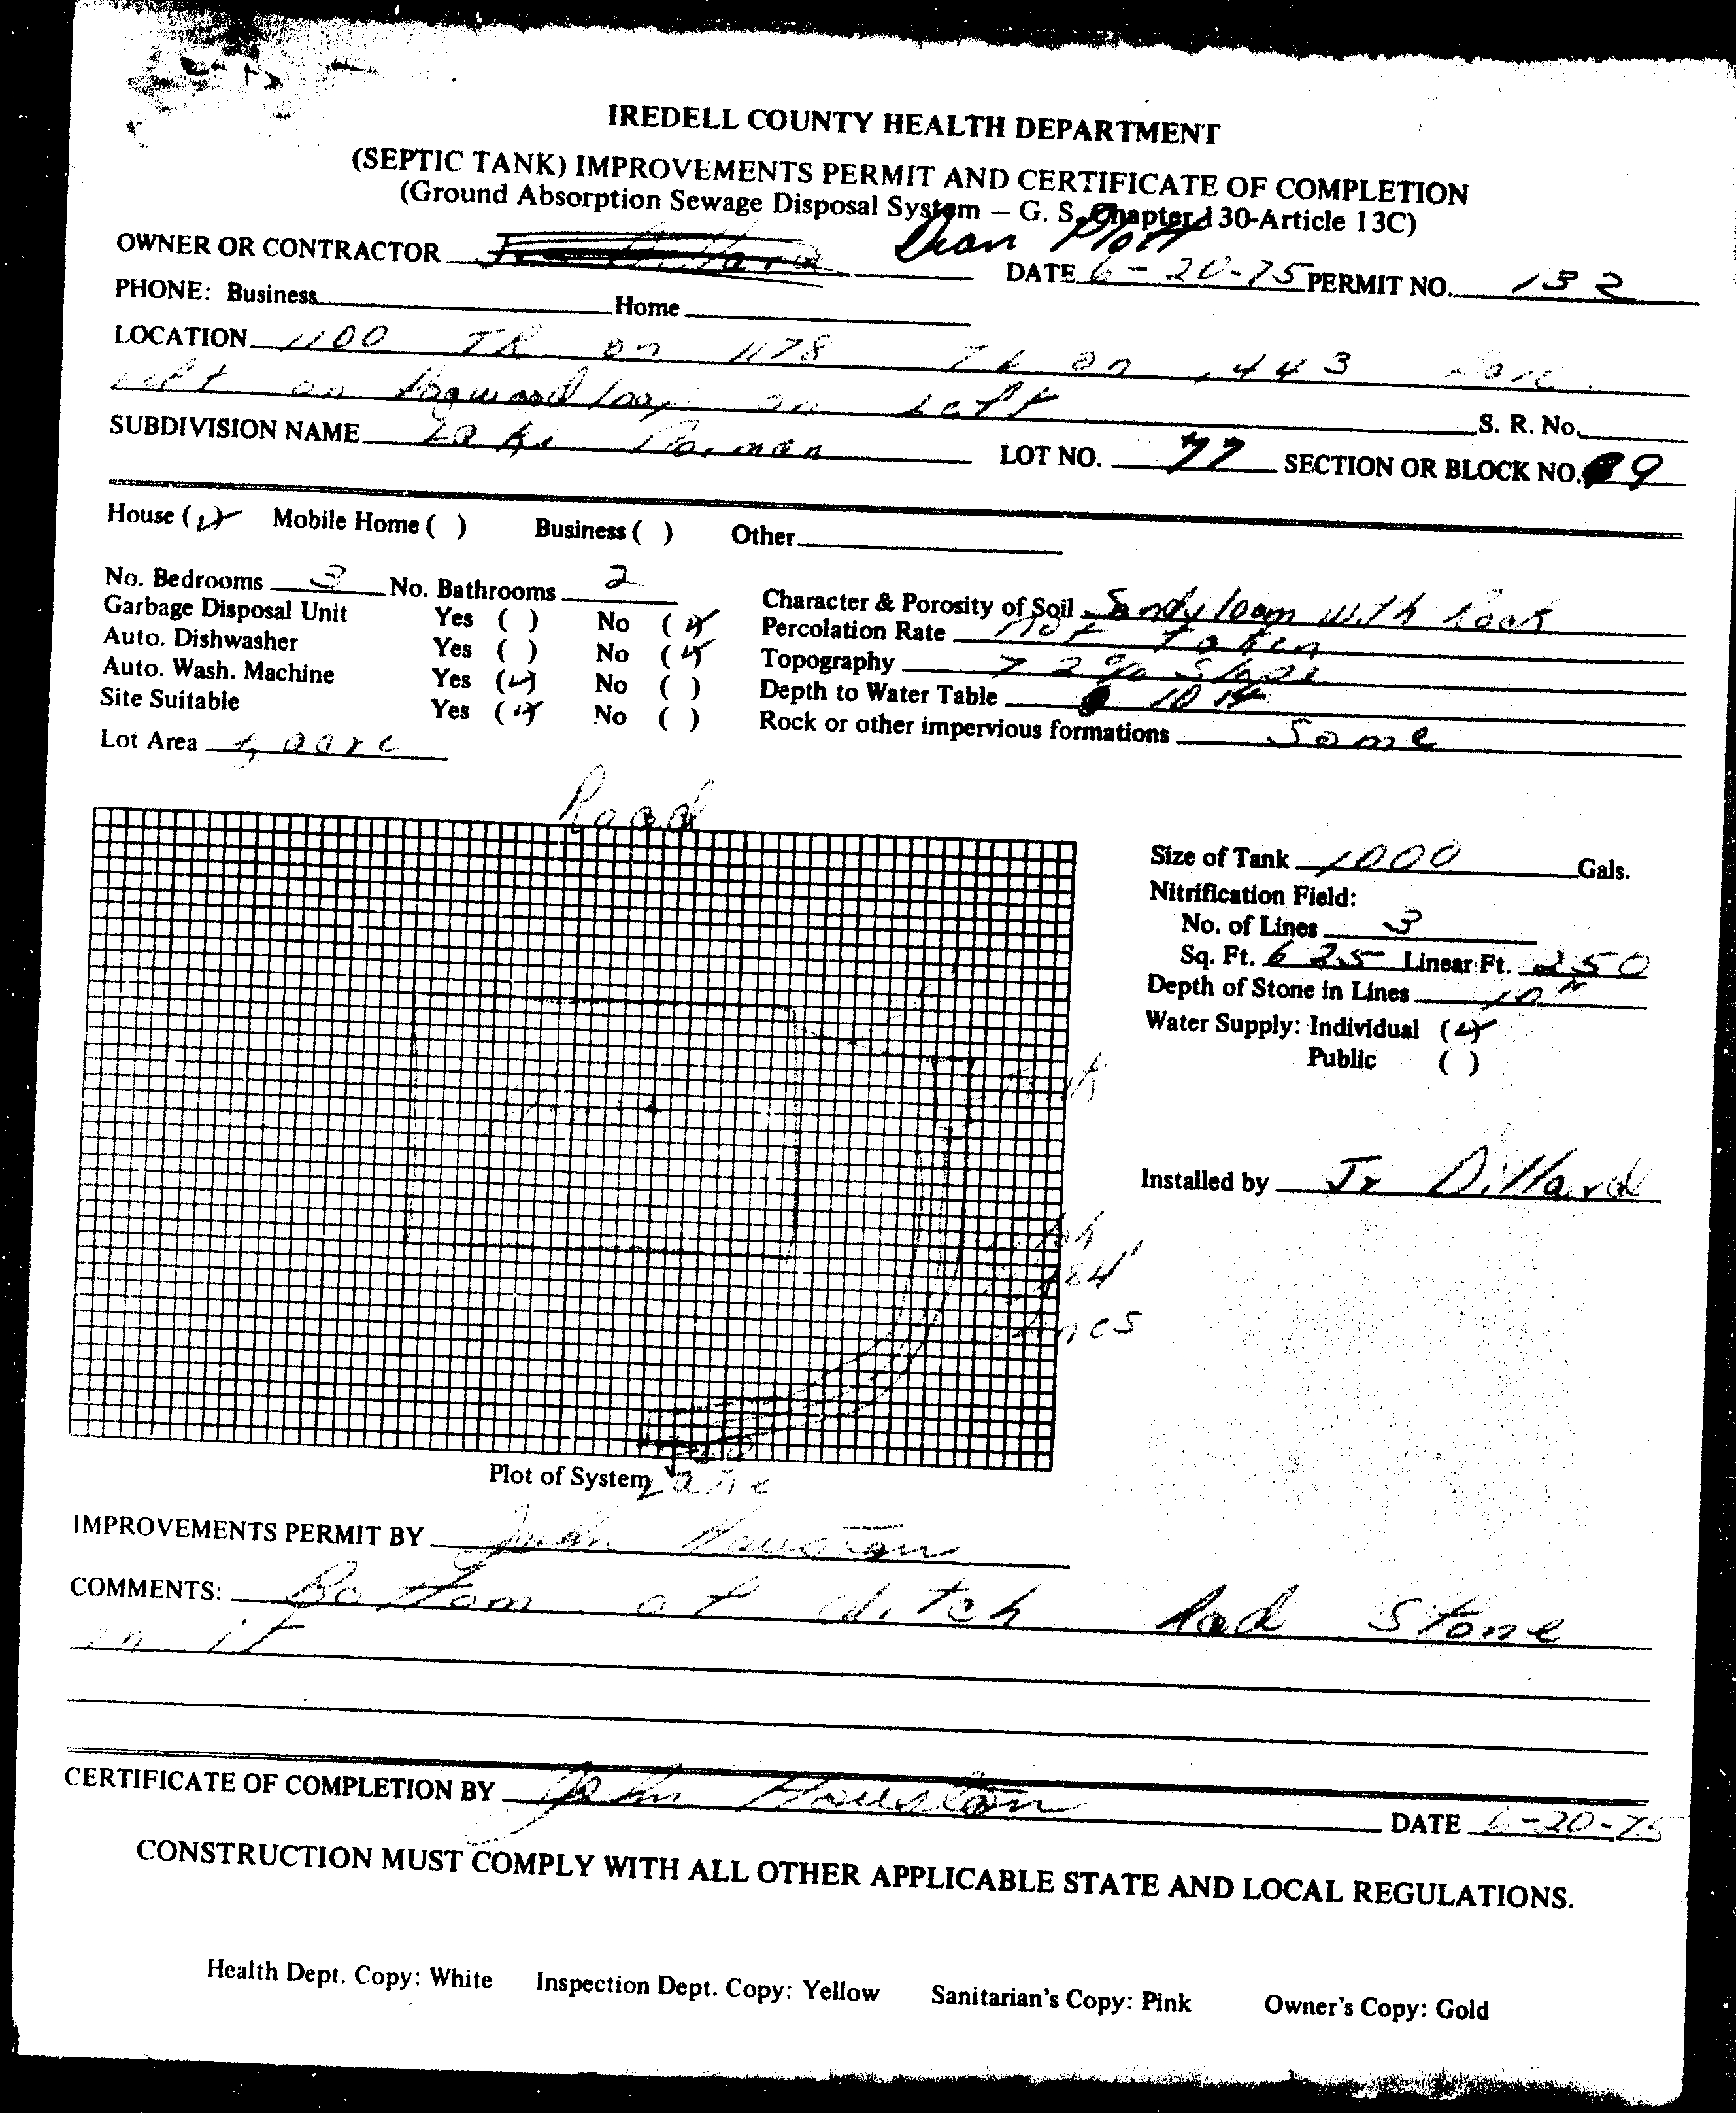 IREDELL COUNTY HEALTH DEPARTMENT
(SEPTIC TANK) IMPROVEMENTS PERMIT AND CERTIFICATE OF COMPLETION
(Ground Absorption Sewage Disposal System – G. S. Chapter 130-Article 13C)
OWNER OR CONTRACTOR Dean Plott DATE 6-20-75 PERMIT NO. 132
PHONE: Business Home
LOCATION 1100 TR on 1178 TL on 1443
left on Dogwood loop on Left S. R. No.
SUBDIVISION NAME Lake Norman LOT NO. 77 SECTION OR BLOCK NO. 9
House ( ) Mobile Home ( ) Business ( ) Other
No. Bedrooms 3 No. Bathrooms 2
Character & Porosity of Soil Sandy loam with Rock
Garbage Disposal Unit Yes ( ) No (✓)
Percolation Rate Not taken
Auto. Dishwasher Yes ( ) No (✓)
Topography 72% Slope
Auto. Wash. Machine Yes (✓) No ( )
Depth to Water Table 10 ft
Site Suitable Yes (✓) No ( )
Rock or other impervious formations Some
Lot Area acre
Road
Size of Tank 1000 Gals.
Nitrification Field:
No. of Lines 3
Sq. Ft. 625 Linear Ft. 250
Depth of Stone in Lines 10"
Water Supply: Individual (✓)
Public ( )
Installed by Jr Dillard
Plot of System
IMPROVEMENTS PERMIT BY John Houston
COMMENTS: Bottom of ditch had stone
in it
CERTIFICATE OF COMPLETION BY John Houston DATE 6-20-75
CONSTRUCTION MUST COMPLY WITH ALL OTHER APPLICABLE STATE AND LOCAL REGULATIONS.
Health Dept. Copy: White Inspection Dept. Copy: Yellow Sanitarian's Copy: Pink Owner's Copy: Gold